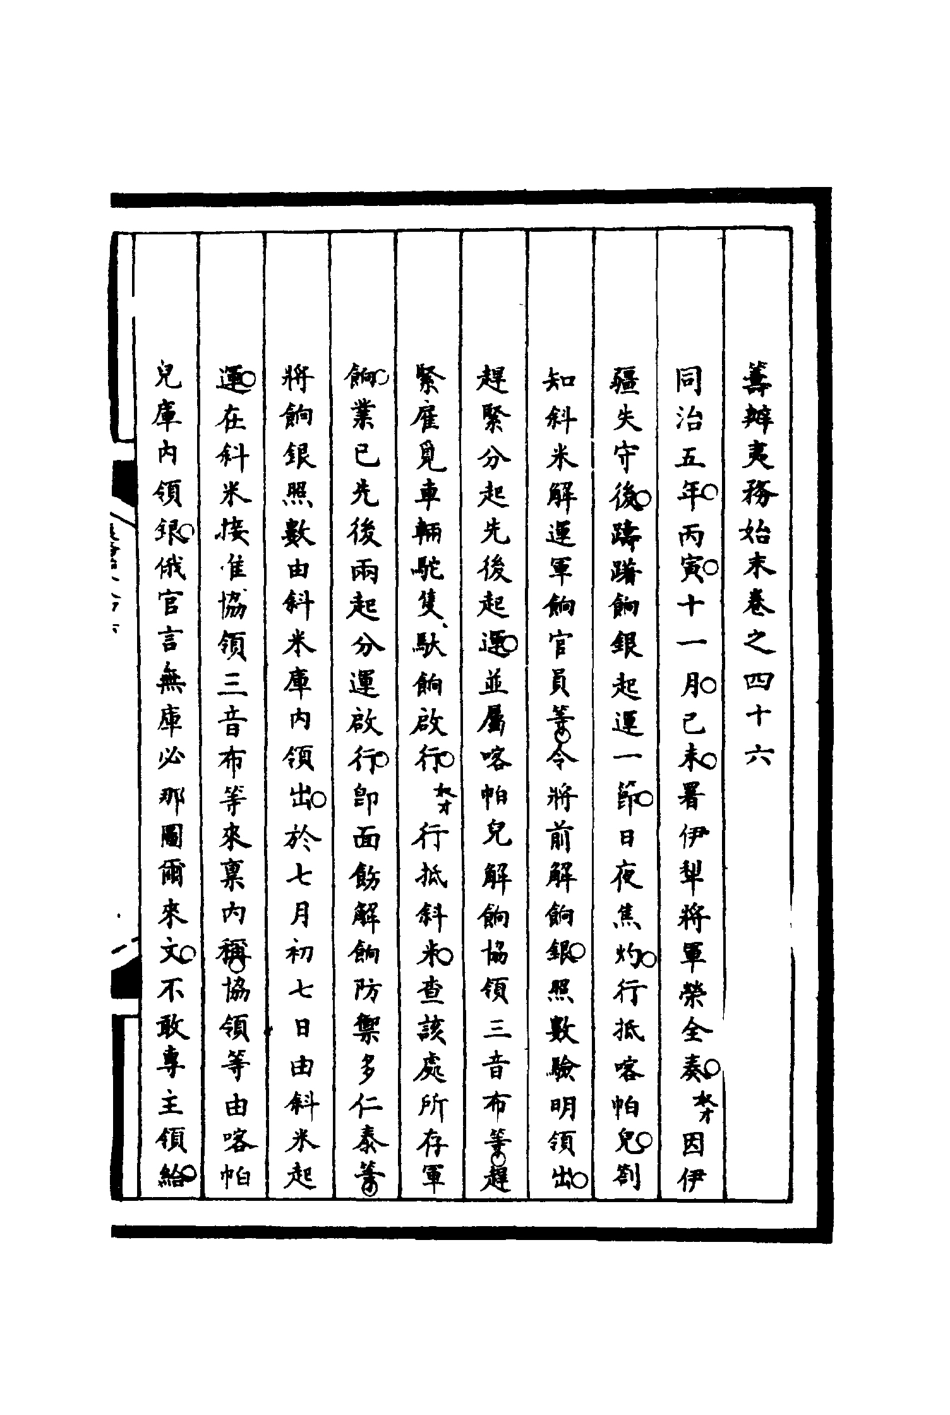 籌辦夷務始末卷之四十六
同治五年○丙寅○十一月○己未○署伊犁將軍榮全奏○奴才因伊
疆失守後○躊躇餉銀起運一節○日夜焦灼○行抵喀帕兒○劄
知斜米解運軍餉官員等○令將前解餉銀○照數驗明領出○
趕緊分起先後起運○並屬喀帕兒解餉協領三音布等○趕
緊雇覓車輛駝隻馱餉啟行○奴才行抵斜米○查該處所存軍
餉○業已先後兩起分運啟行○卽面飭解餉防禦多仁泰等○
將餉銀照數由斜米庫內領出○於七月初七日由斜米起
運○在斜米接准協領三音布等來稟內稱○協領等由喀帕
兒庫內領銀○俄官言無庫必那圖爾來文○不敢專主領給○